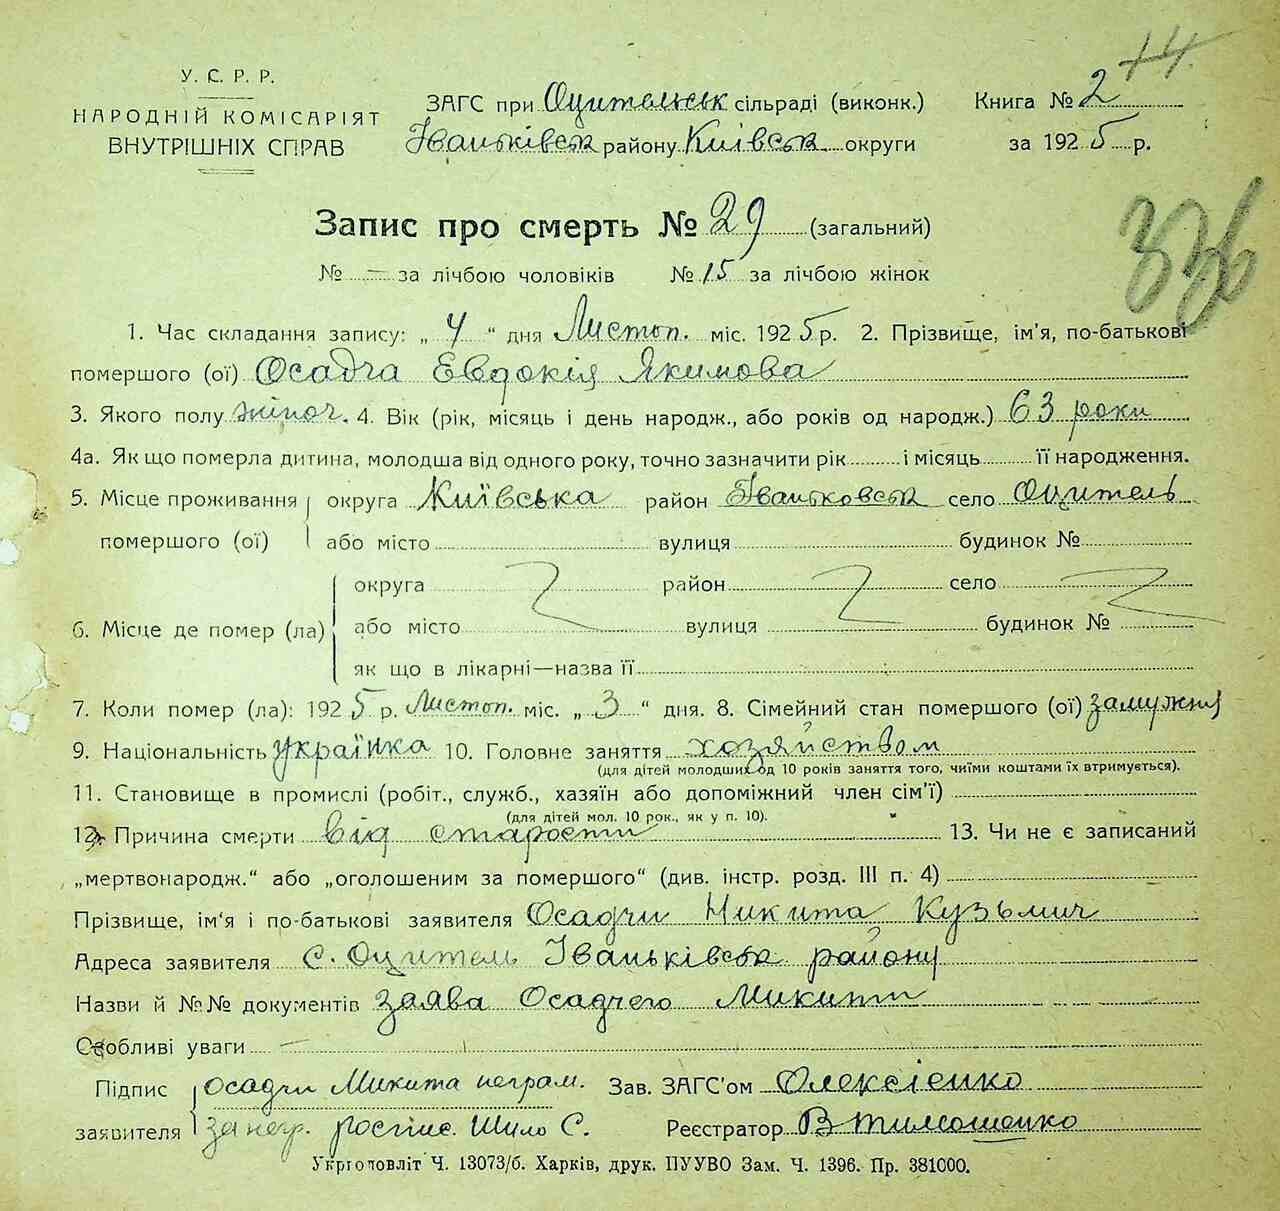 44.
У. С. Р. Р.
НАРОДНІЙ КОМІСАРІЯТ
ВНУТРІШНІХ СПРАВ
ЗАГС при Оцительськ сільраді (виконк.)
Іваньківськ району Київськ округи
Книга № 2
за 1925 р.
336
Запис про смерть № 29 (загальний)
№ — за лічбою чоловіків № 15 за лічбою жінок
1. Час складання запису: „ 4 “ дня Листоп. міс. 1925 р. 2. Прізвище, ім'я, по-батькові
помершого (ої) Осадча Евдокія Якимова
3. Якого полу жіноч. 4. Вік (рік, місяць і день народж., або років од народж.) 63 роки
4а. Як що померла дитина, молодша від одного року, точно зазначити рік і місяць її народження.
5. Місце проживання округа Київська район Іваньковськ село Оцитель
помершого (ої) або місто вулиця будинок №
округа район село
6. Місце де помер (ла) або місто вулиця будинок №
як що в лікарні—назва її
7. Коли помер (ла): 1925 р. Листоп. міс. „ 3 “ дня. 8. Сімейний стан помершого (ої) замужня
9. Національність українка 10. Головне заняття хозяйством
(для дітей молодших од 10 років заняття того, чиїми коштами їх втримується).
11. Становище в промислі (робіт., служб., хазяїн або допоміжний член сім'ї)
(для дітей мол. 10 рок., як у п. 10).
12. Причина смерти від старости 13. Чи не є записаний
„мертвонародж.“ або „оголошеним за помершого“ (див. інстр. розд. III п. 4)
Прізвище, ім'я і по-батькові заявителя Осадчи Никита Кузьмич
Адреса заявителя с. Оцитель Іваньківськ району
Назви й №№ документів заява Осадчего Микити
Особливі уваги —
Підпис Осадчи Микита неграм. Зав. ЗАГС'ом Олексієнко
заявителя за негр. росписс. Шило С. Реєстратор В Тимошенко
Укрголовліт Ч. 13073/б. Харків, друк. ПУУВО Зам. Ч. 1396. Пр. 381000.